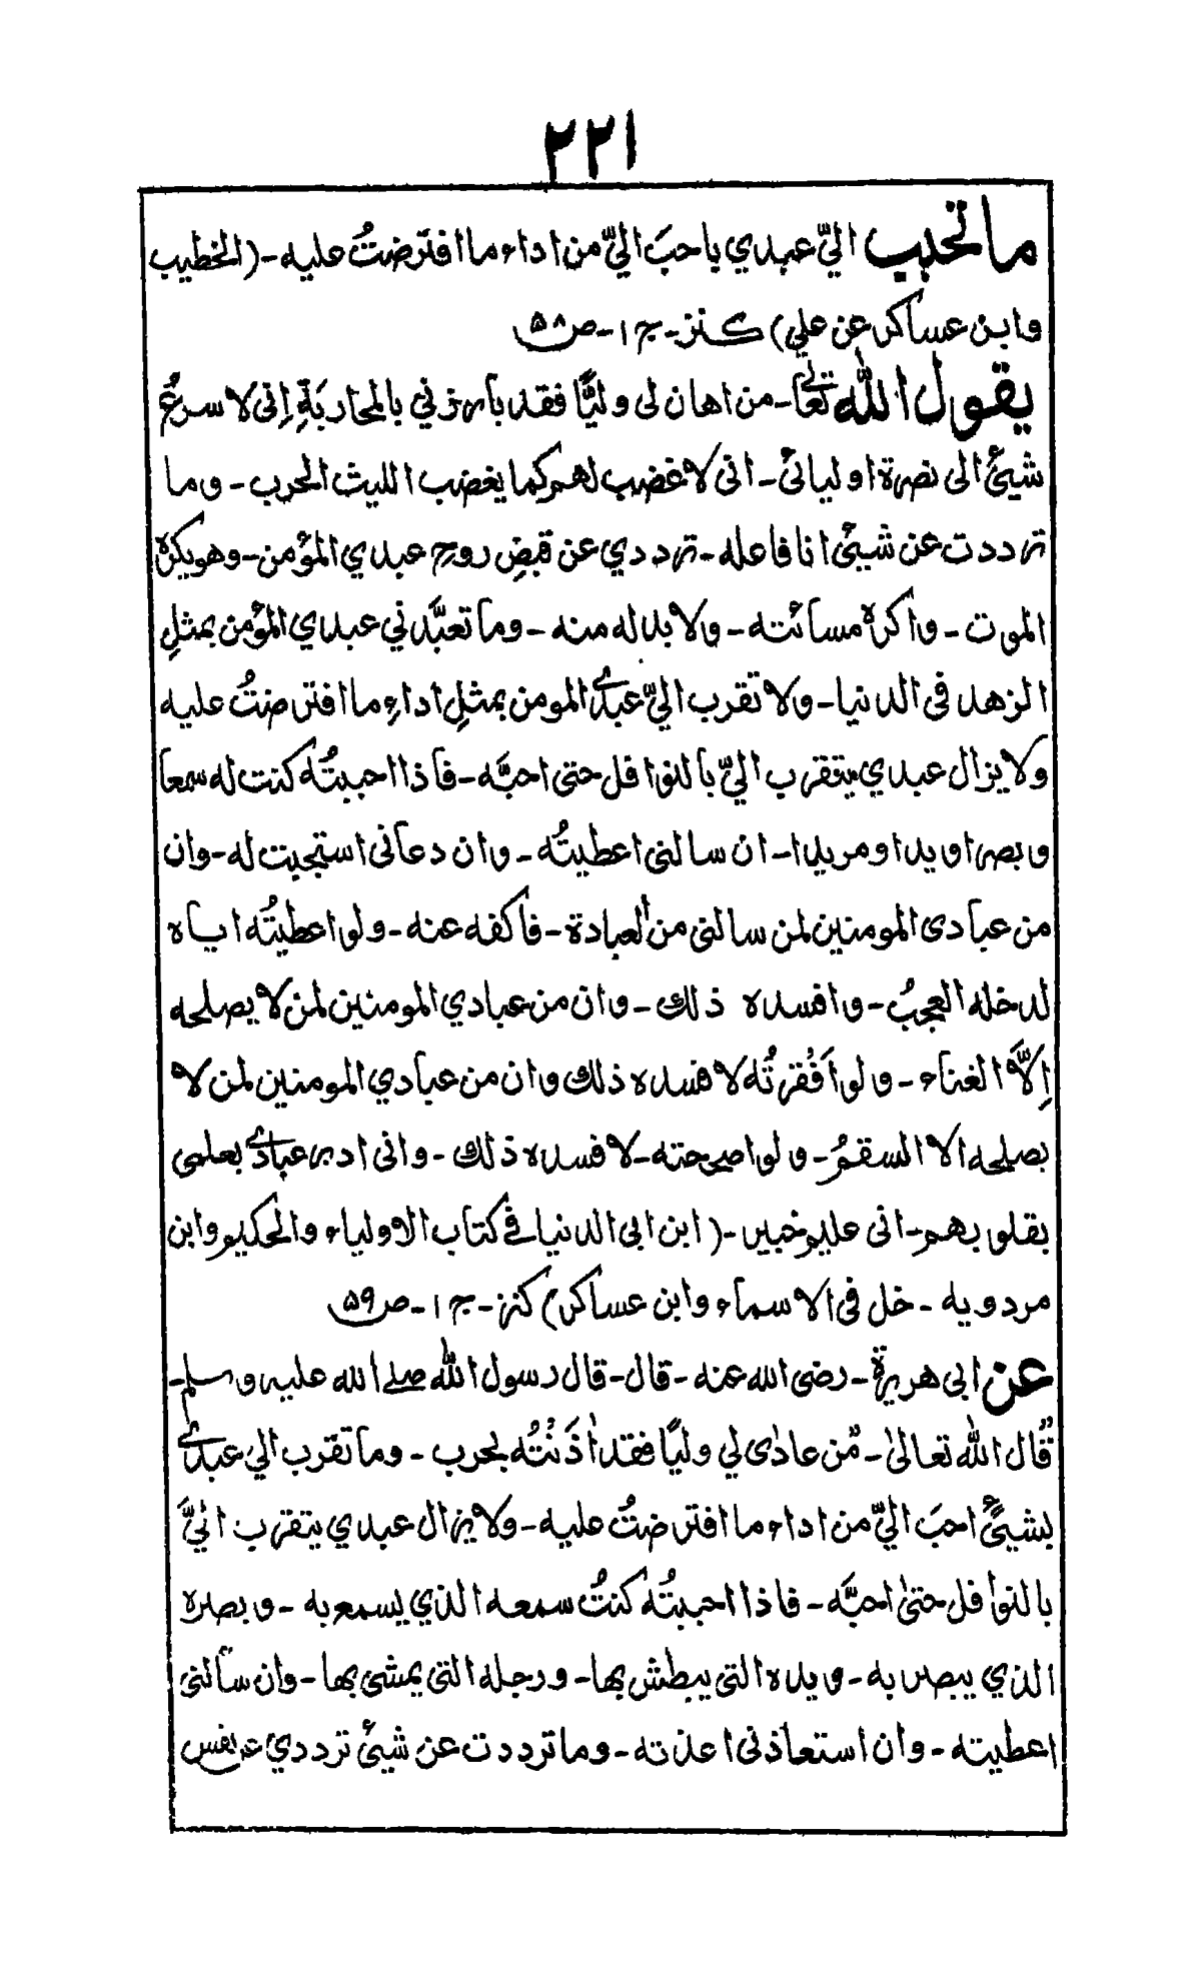 ٢٢١
ما تحبب اليّ عبدي باحبَ اليّ من اداء ما افترضتُ عليه - (الخطيب
وابن عساكر عن علي) كنز - ج ١ - ص ۵۸
يقول الله تعالى - من اهان لى وليًّا فقد بارزني بالمحاربَةِ اِنى لا سرعُ
شيئٍ الى نصرة اوليائى - انى لا غضب لهم كما يغضب الليث الحرب - وما
ترددت عن شيئٍ انا فاعله - ترددي عن قبضِ روحِ عبدي المؤمن - وهو يكره
الموت - واكره مسائته - ولا بد له منه - وما تعبَّدني عبدي المؤمن بمثلِ
الزهد فى الدنيا - ولا تقرب اليّ عبدى المومن بمثلِ اداءِ ما افترضتُ عليه
ولا يزال عبدي يتقرب اليّ بالنوافل حتى احبَّه - فاذا احببتُه كنت له سمعا
وبصرا ويدا ومريدا - ان سالنى اعطيتُه - وان دعانى استجبت له - وان
من عبادى المومنين لمن سالنى من العبادة - فاكفه عنه - ولو اعطيتُه اياه
لدخله العجبُ - وافسده ذلك - وان من عبادي المومنين لمن لا يصلحه
اِلاَّ الغناء - ولو اَفْقرتُه لا فسده ذلك وان من عبادي المومنين لمن لا
يصلحه الا السقمُ - ولو اصححته - لا فسده ذلك - وانى ادبر عبادى بعلمى
بقلوبهم - انى عليم خبير - (ابن ابى الدنيا فى كتاب الاولياء والحكيم وابن
مردويه - خل فى الاسماء وابن عساكر) كنز - ج ١ - ص ۵۹
عن ابى هريرة - رضى الله عنه - قال - قال رسول الله صلے الله عليه وسلم -
قال الله تعالىٰ - مَن عادٰى لي وليًا فقد اٰذَنْتُه بحرب - وما تقرب الي عبدى
بشيئٍ احبَ اليّ من اداء ما افترضتُ عليه - ولا يزال عبدي يتقرب اليَّ
بالنوافل حتىٰ احبَّه - فاذا احببتُه كنتُ سمعه الذي يسمع به - وبصره
الذي يبصر به - ويده التى يبطش بها - ورجله التى يمشى بها - وان سألنى
اعطيته - وان استعاذنى اعذته - وما ترددت عن شيئٍ ترددي عن نفس